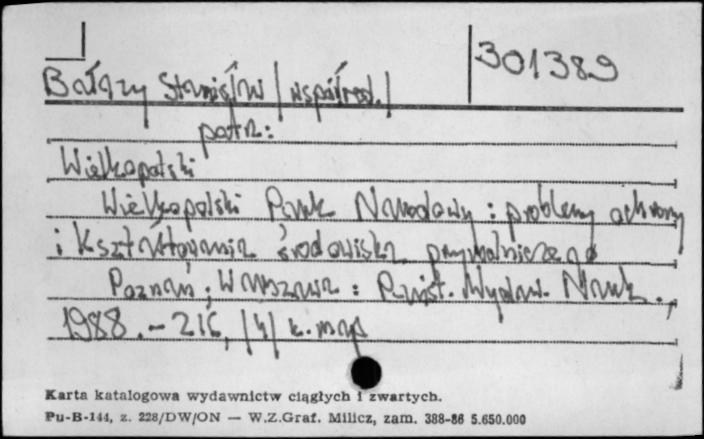 301389
Bałazy Stanisław /współred./
patrz:
Wielkopolski
Wielkopolski Park Narodowy : problemy ochrony
i kształtowania środowiska przyrodniczego
Poznań ; Warszawa : Państ. Wydaw. Nauk.,
1988. - 216, /4/ k. map
Karta katalogowa wydawnictw ciągłych i zwartych.
Pu-B-144, z. 228/DW/ON — W.Z.Graf. Milicz, zam. 388-86 5.650.000